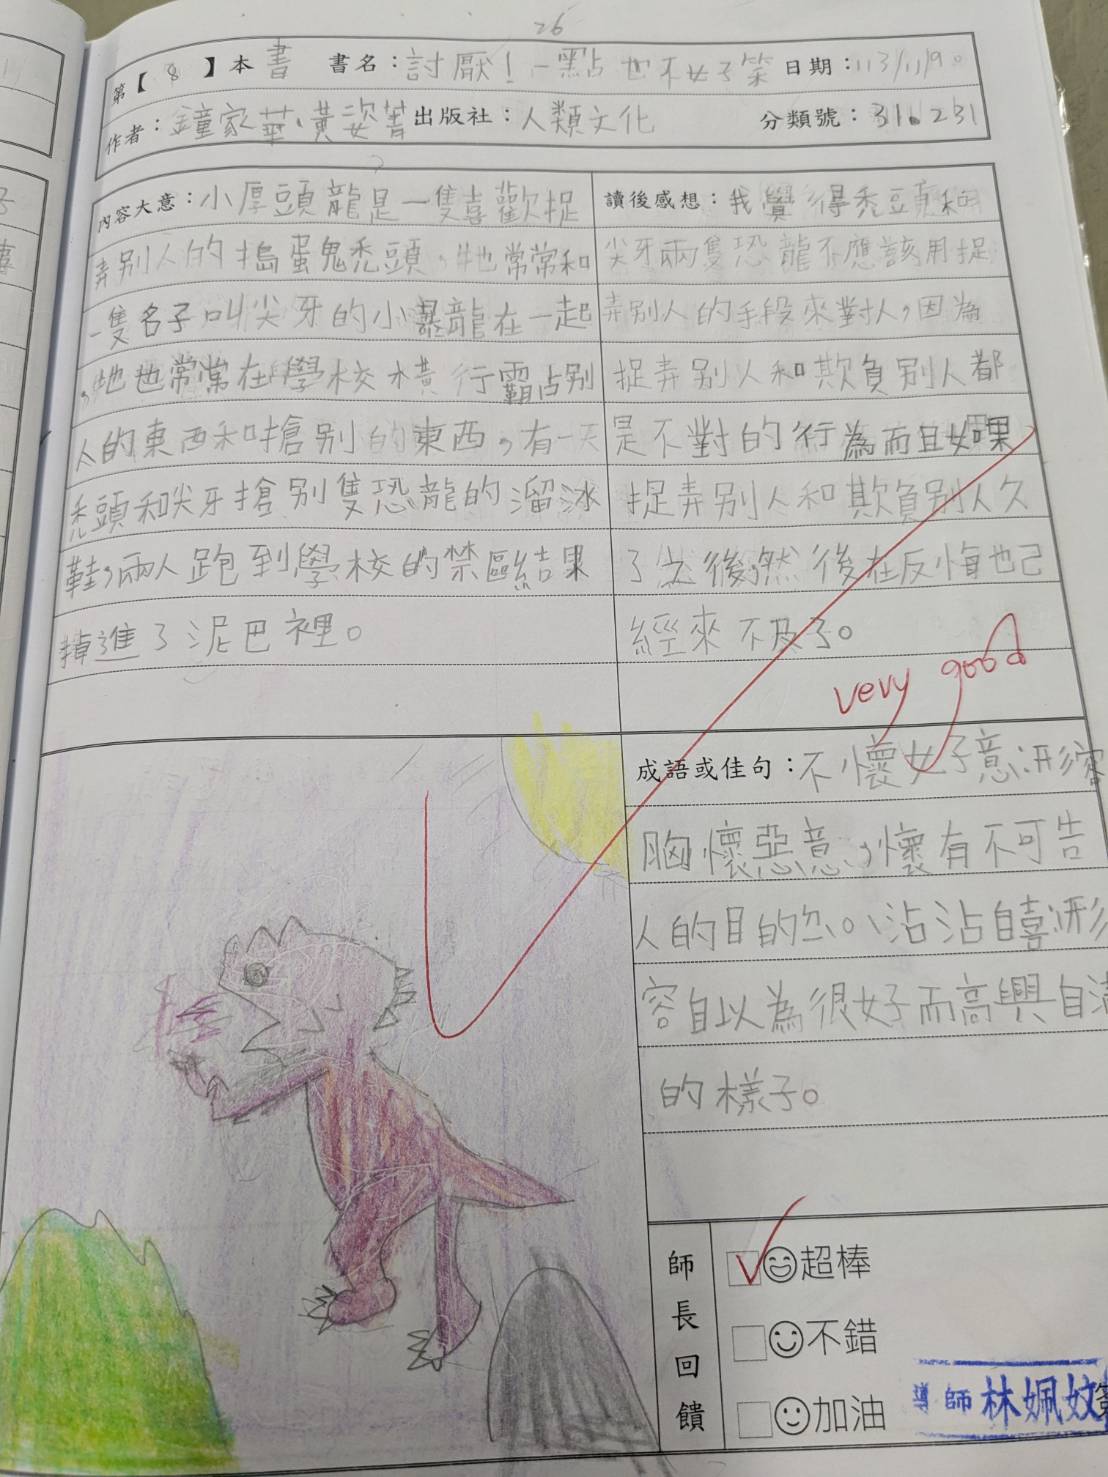 26
第【 8 】本 書 書名：討厭！一點也不好笑 日期：113/11/9。
作者：鐘家華、黃姿菁 出版社：人類文化 分類號：316.231
內容大意：小厚頭龍是一隻喜歡捉
弄別人的搗蛋鬼禿頭，牠常常和
一隻名子叫尖牙的小暴龍在一起
，牠也常常在學校橫行霸占別
人的東西和搶別的東西，有一天
禿頭和尖牙搶別隻恐龍的溜冰
鞋，兩人跑到學校的禁區結果
掉進了泥巴裡。
讀後感想：我覺得禿頭和
尖牙兩隻恐龍不應該用捉
弄別人的手段來對人，因為
捉弄別人和欺負別人都
是不對的行為而且如果
捉弄別人和欺負別人久
了以後，然後在反悔也已
經來不及了。
very good
成語或佳句：不懷好意：形容
胸懷惡意，懷有不可告
人的目的。沾沾自喜：形
容自以為很好而高興自滿
的樣子。
師長回饋
超棒
不錯
加油
導師 林姵妏